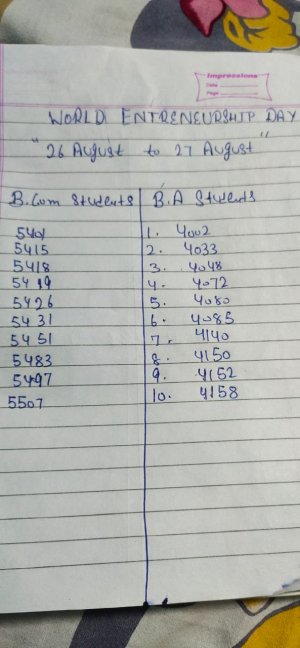 Impressions
Date
Page
WORLD ENTRENEURSHIP DAY
"26 August to 27 August"
B.Com Students B.A Students
5401 1. 4002
5415 2. 4033
5418 3. 4048
5419 4. 4072
5426 5. 4080
5431 6. 4085
5451 7. 4140
5483 8. 4150
5497 9. 4152
5507 10. 4158